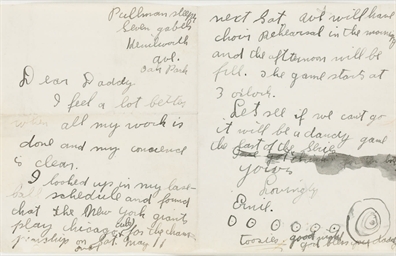 Pullman sleeps
Seven gables
Kenilworth
ave.
Oak Park
Dear Daddy
I feel a lot better
when all my work is
done and my concience
is clear.
I looked up in my base-
ball schedule and found
that the New York giants
play chicago cubs for the cham
pionship on Sat. May 11
next Sat. will have
choir Rehearsal in the morning
and the afternoon will be
fill. The game starts at
3 oclock.
Let see if we cant go
it will be a dandy game
the last of the
yours
Lovingly
Ernie.
good night
god bless you